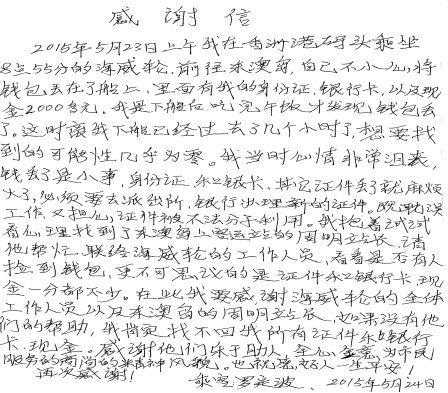 感谢信
2015年5月23日上午我在香洲港码头乘坐
8点55分的海威轮,前往东澳岛,自己不小心,将
钱包丢在了船上,里面有我的身份证、银行卡,以及现
金2000多元。我是下船后吃完午饭才发现钱包丢
了。这时离我下船已经过去了几个小时了,想要找
到的可能性几乎为零。我当时心情非常沮丧,
钱丢了是小事,身份证、和银卡、其它证件丢了就麻烦
大了,必须要去派出所,银行办理新的证件。既耽误
工作,又担心证件被不法分子利用。我抱着试试
看心理找到了东澳岛上客运站的周明站长,请
他帮忙,联络海威轮的工作人员,看看是否有人
捡到钱包,更不可思议的是证件和银行卡、现
金一分都不少。在此我要感谢海威轮的全体
工作人员以及东澳岛的周明站长,如果没有他
们的帮助,我肯定找不回我所有证件和银行
卡、现金。感谢他们乐于助人,全心全意为市民
服务的高尚的精神风貌。也祝愿好人一生平安!
再次感谢!
乘客:波、2015年5月24日